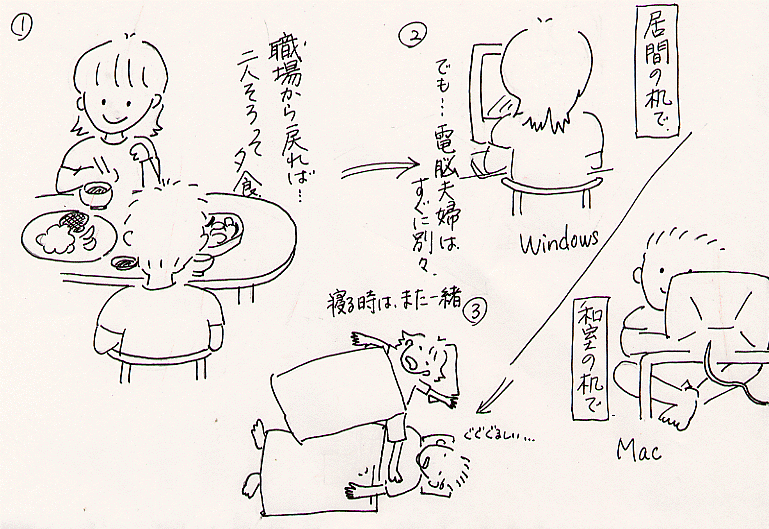 ①
職場から戻れば…
二人そろって夕食
②
でも…電脳夫婦は、
すぐに別々.
居間の机で
Windows
和室の机で
Mac
寝る時は、また一緒
③
ぐどぐるしい…